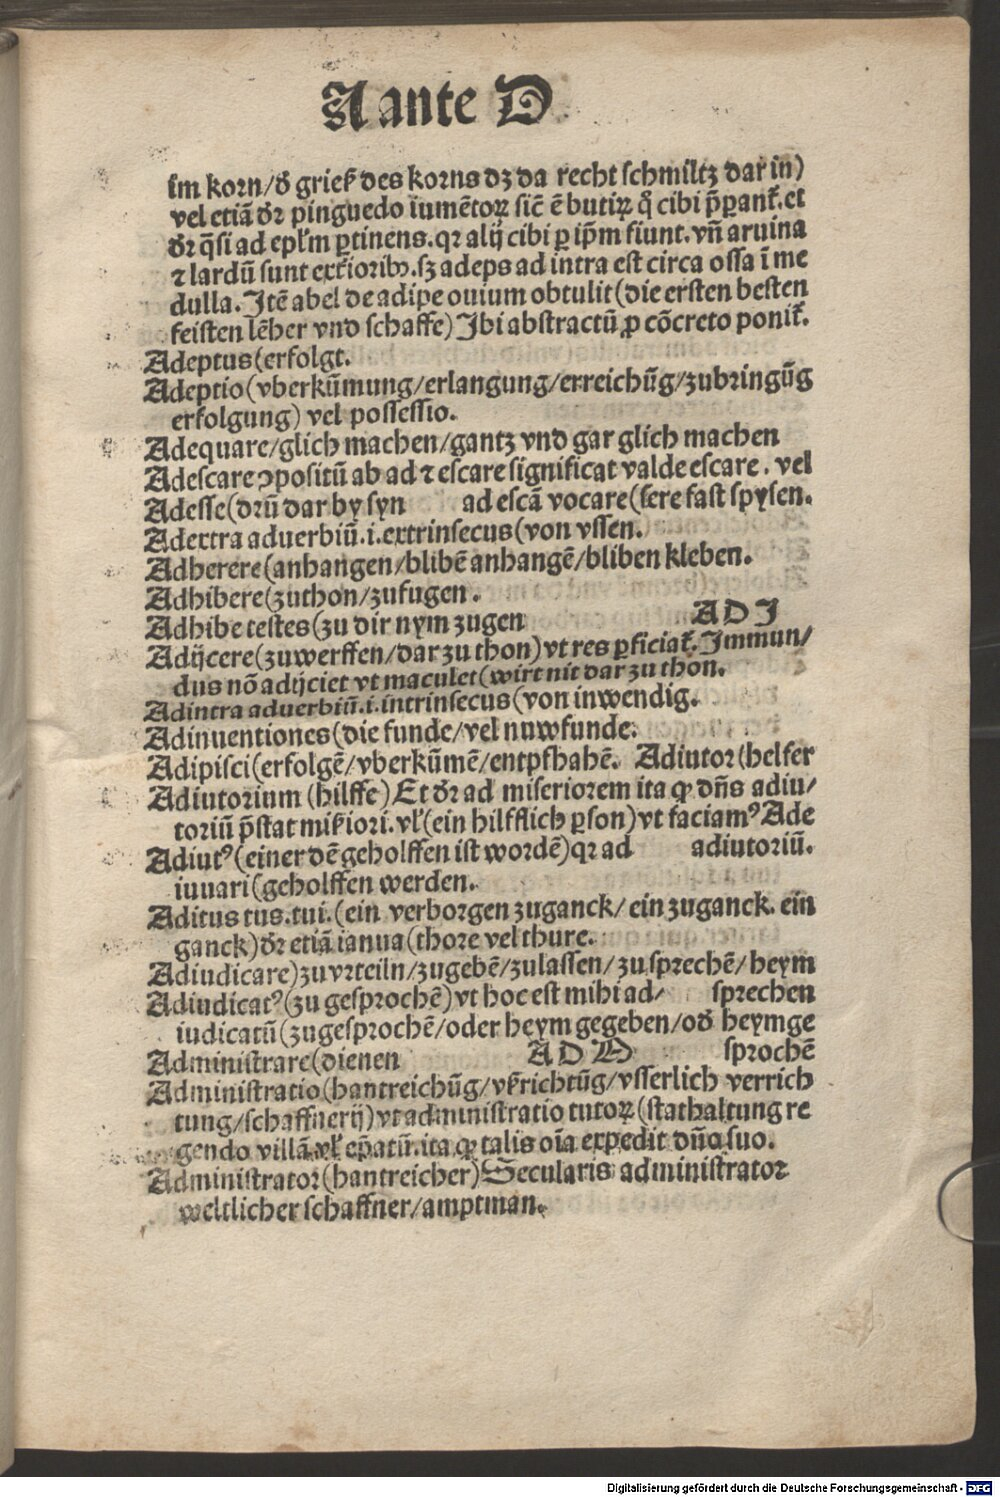 A ante D
km korn/ď griek̄ des korns dz da recht schmiltz dar in)
vel etiā dr̄ pinguedo iumētoꝝ sic̄ ē butiꝝ q̊ cibi p̄ꝑant̄.et
dr̄ q̄si ad epl̄m ꝑtinens.qꝛ alij cibi ꝑ ip̄m fiunt.vn̄ aruina
⁊ lardū sunt ext̄ioribꝫ.sꝫ adeps ad intra est circa ossa ī me
dulla. Itē abel de adipe ouium obtulit(die ersten besten
feisten lēber vnd schaffe) Ibi abstractū ꝓ cōcreto ponit̄.
Adeptus(erfolgt.
Adeptio(vberkūmung/erlangung/erreichūg/zubringūg
erfolgung) vel possessio.
Adequare/glich machen/gantz vnd gar glich machen
Adescare ꝯpositū ab ad ⁊ escare significat valde escare. vel
Adesse(drū dar by syn ad escā vocare(sere fast spysen.
Adextra aduerbiū.i.extrinsecus(von vssen.
Adherere(anhangen/blibē anhangē/bliben kleben.
Adhibere(zuthon/zufugen.
Adhibe testes(zu dir nym zugen A D I
Adijcere(zuwerffen/dar zu thon) vt res ꝑficiat̄. Immun/
dus nō adijciet vt maculet(wirt nit dar zu thon.
Adintra aduerbiū.i.intrinsecus(von inwendig.
Adinuentiones(die funde/vel nuwfunde.
Adipisci(erfolgē/vberkūmē/entpfhahē. Adiutor(helfer
Adiutorium (hilffe) Et dr̄ ad miseriorem ita ꝙ dn̄s adiu/
toriū p̄stat mik̄iori.vl̄(ein hilfflich ꝑson)vt faciamꝰ Ade
Adiutꝰ(einer dē geholffen ist wordē)qꝛ ad adiutoriū.
iuuari(geholffen werden.
Aditus tus.tui.(ein verborgen zuganck/ ein zuganck. ein
ganck)dr̄ etiā ianua(thore vel thure.
Adiudicare)zu vrteiln/zugebē/zulassen/zu sprechē/heym
Adiudicatꝰ(zu gesprochē) vt hoc est mihi ad/ sprechen
iudicatū(zugesprochē/oder heym gegeben/oď heymge
Administrare(dienen A D M sprochē
Administratio(hantreichūg/vk̄richtūg/vsserlich verrich
tung/schaffnerij)vt administratio tutoꝝ(stathaltung re
gendo villā.vl̄ ep̄atū.ita ꝙ talis oīa expedit dn̄o suo.
Administrator(hantreicher)Secularis administrator
weltlicher schaffner/amptman.
Digitalisierung gefördert durch die Deutsche Forschungsgemeinschaft - DFG